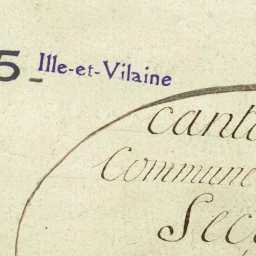 5_ Ille-et-Vilaine
cant
Commune
Sec